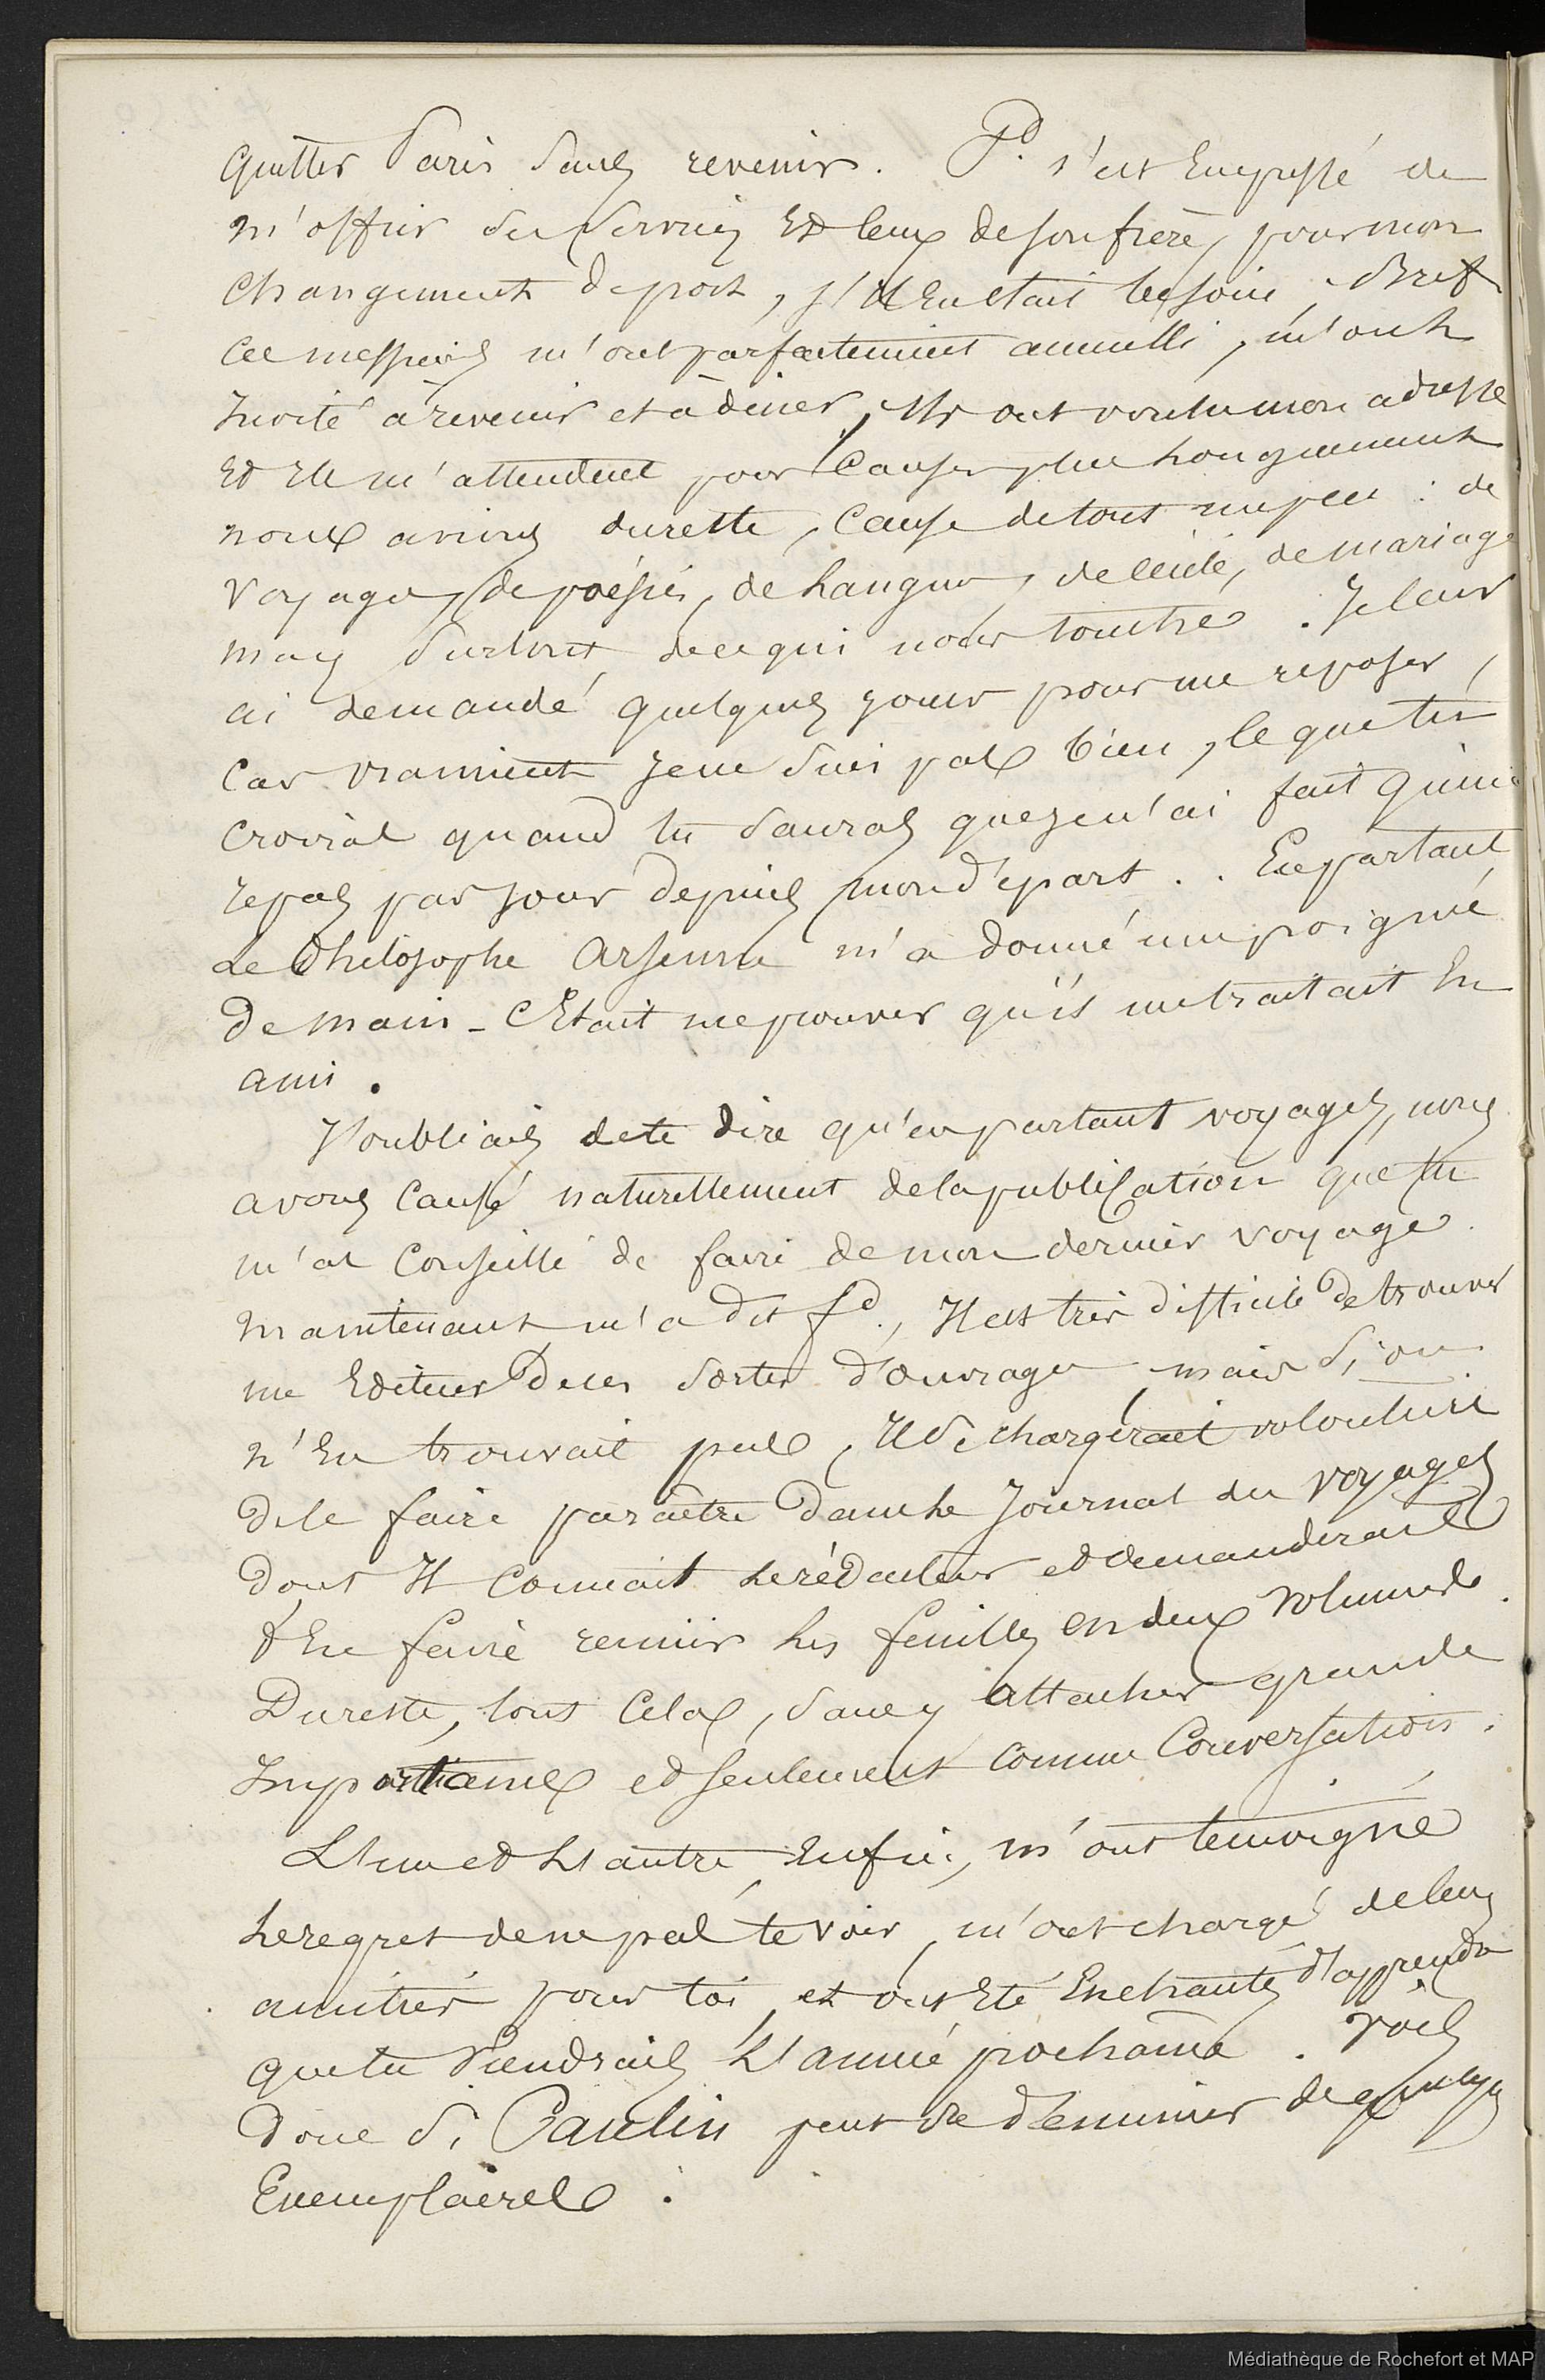 quitter Paris sans revenir. Pd. s'est Empressé de
m'offrir ses services Et ceux de son frère, pour mon
Changement de port, s'Il En était besoin. Bref
Ces messieurs m'ont parfaitement accueilli, m'ont
Invité à revenir et à diner, Ils ont voulu mon adresse
Et Ils m'attendent pour Causer plus longuement
nous avions du reste, Causé de tout un peu : de
Voyages, de poésies, de langues, de l'Inde, de mariage
mais surtout de ce qui nous touche. Je leur
ai demandé quelques jours pour me reposer,
Car vraiment Je ne suis pas bien, Ce que tu
Croiras quand tu sauras que je n'ai fait qu'un
repas par Jour depuis mon départ.. En partant
Le Philosophe Arsenne m'a donné une poignée
de main - C'Etait me prouver qu'il me traitait En
ami.
J'oubliais de te dire qu'en parlant voyages, nous
avons Causé naturellement de la publication que tu
m'as Conseillé de faire de mon dernier voyage.
maintenant m'a dit fd., Il est très difficile de trouver
un Editeur De ces sortes d'ouvrages mais si on
n'En trouvait pas, Il se chargerait volontiers
de le faire paraître dans le Journal des voyages
dont Il Connait le rédacteur et demanderait
d'En faire reunir les feuilles en deux volumes.
Du reste, tout Cela, sans y attacher grande
Importance et seulement comme Conversation.
L'un et L'autre Enfin, m'ont temoigné
le regret de ne pas te voir, m'ont chargé de leurs
amitiés pour toi et ont Eté Enchantés d'apprendre
que tu viendrais L'année prochaine. Vois
donc si Paulin peut se démunir de quelques
Exemplaires.
Médiathèque de Rochefort et MAP